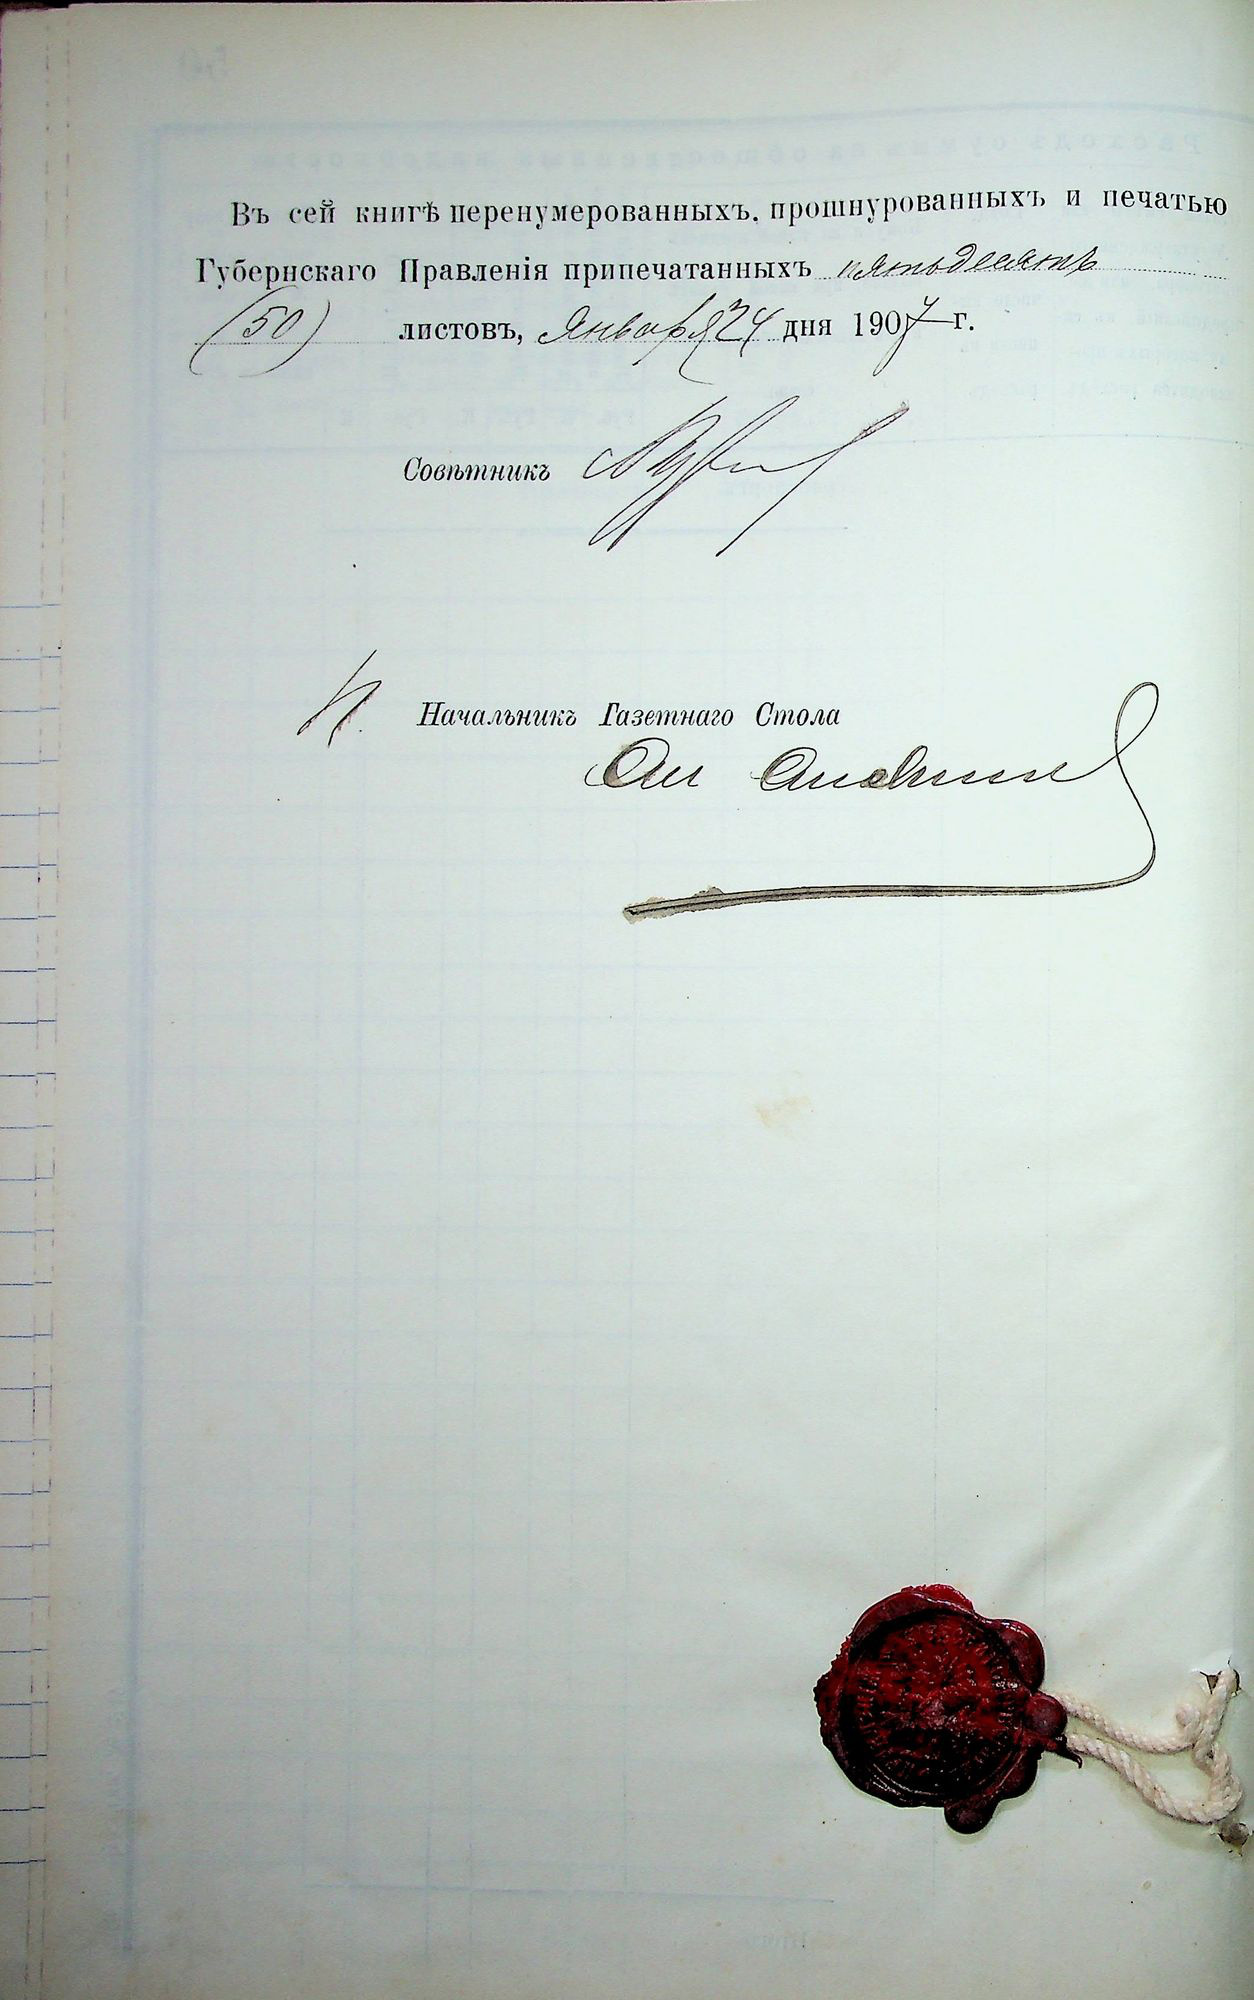 Въ сей книгѣ перенумерованныхъ. прошнурованныхъ и печатью
Губернскаго Правленія припечатанныхъ пятьдесятъ
(50) листовъ, Января 24 дня 1907 г.
Совѣтникъ
Начальникъ Газетнаго Стола